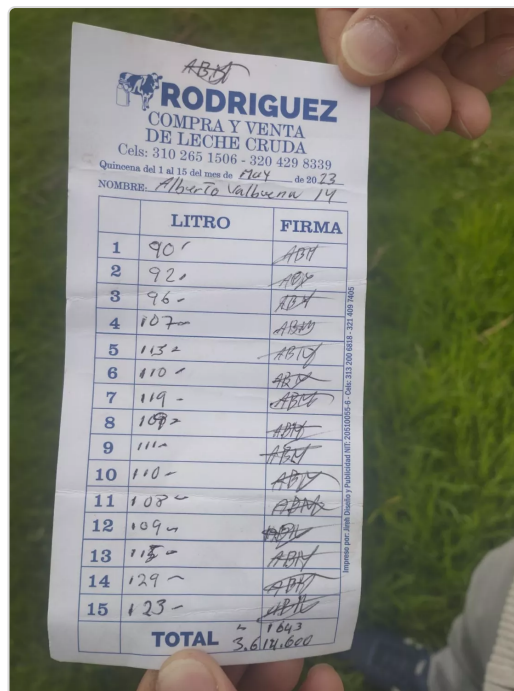 RODRIGUEZ
COMPRA Y VENTA
DE LECHE CRUDA
Cels: 310 265 1506 - 320 429 8339
Quincena del 1 al 15 del mes de May de 2023
NOMBRE: Alberto Valbuena 14
LITRO FIRMA
1 90
2 92
3 96
4 107
5
6 110
7 119
8
9 111
10 110
11 108
12 109
13
14 129
15 123
TOTAL 1643
3.614.600
Impreso por: Jireh Diseño y Publicidad NIT: 20510055-6 - Cels: 313 200 6818 - 321 409 7405